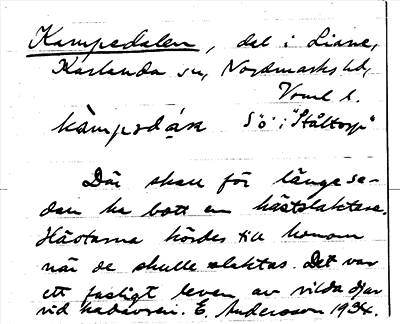 Kampedalen, dal i Liane,
Karlanda sn, Nordmarks hd,
Vrml l.
kàmpədạ:n Sö i "Ståltorp"
Där skall för länge se-
dan ha bott en hästslaktare.
Hästarna fördes till honom
när de skulle slaktas. Det var
ett fasligt leven av vilda djur
vid kadavren. E. Andersson 1934.